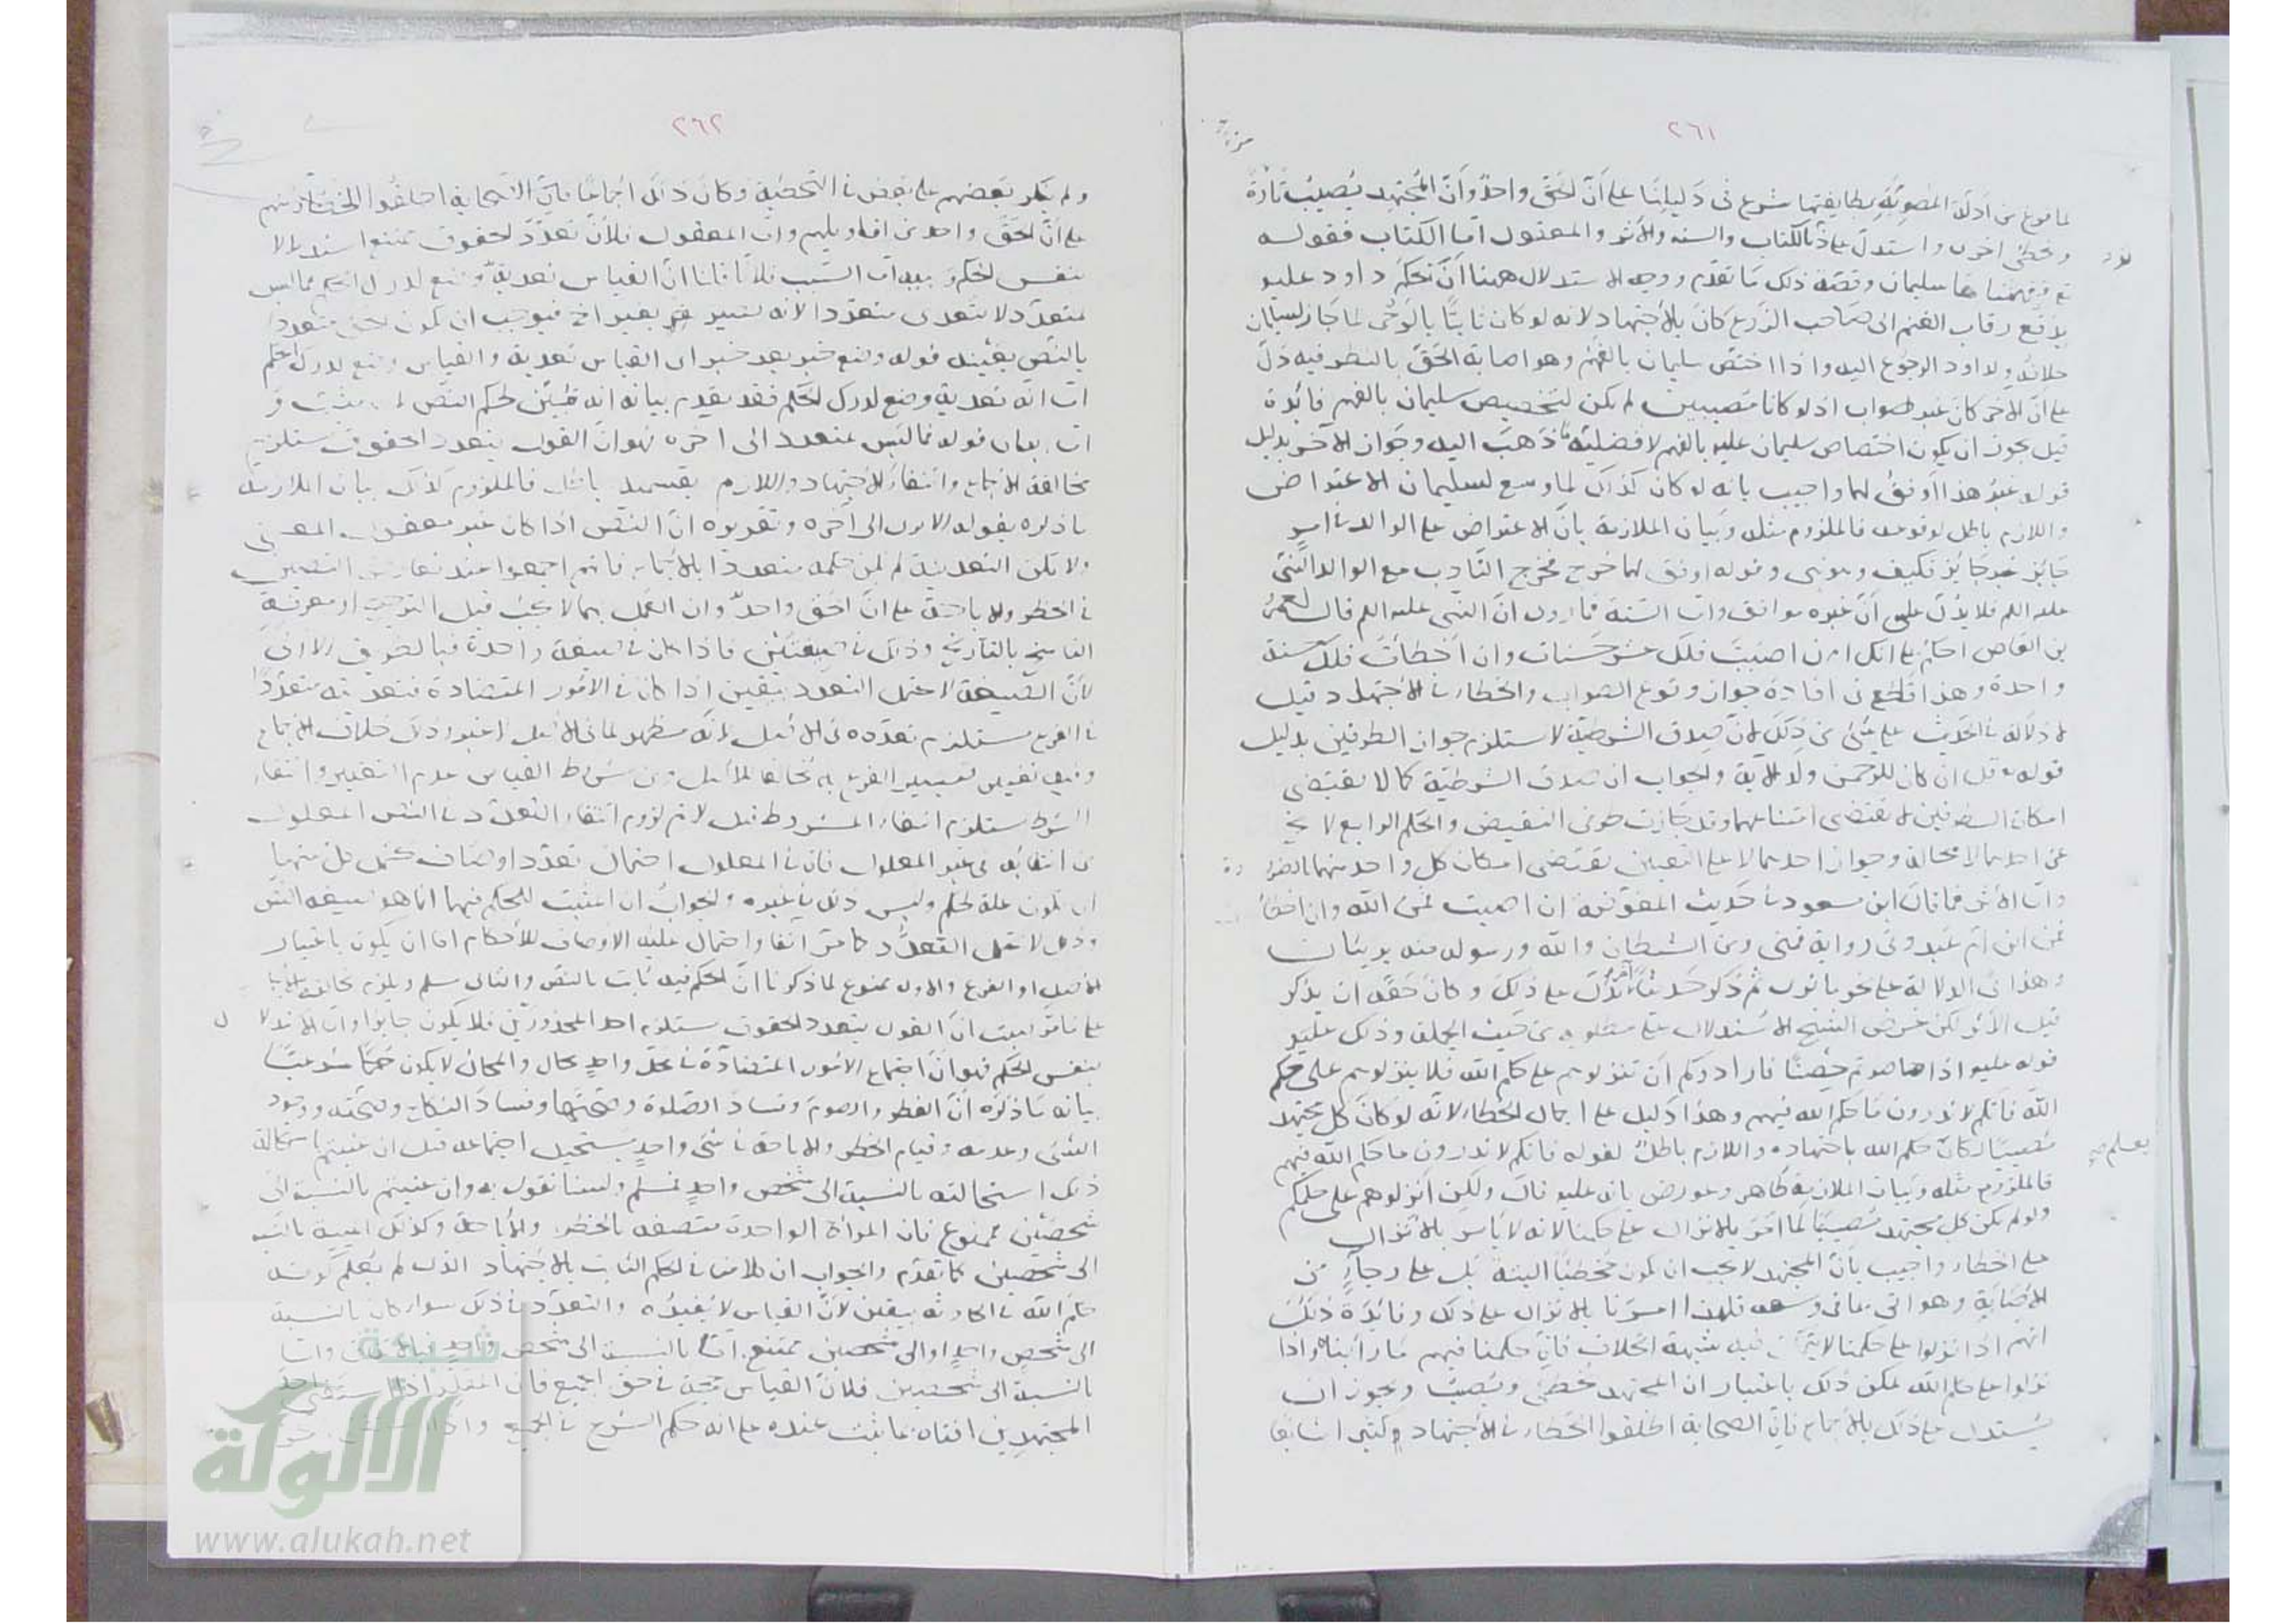 ٢٦١
لما فرغ من ادلة المصوبة بطايفتيها شرع فى دليلنا على أن الحق واحد وأن المجتهد يصيب تارة
ويخطئ اخرى واستدل على ذلك بالكتاب والسنه والأثر والمعقول أما الكتاب فقوله
تع ففهمناها سليمان وقصة ذلك ما تقدم ووجه الاستدلال ههنا أن تحكم داود عليه
بدفع رقاب الغنم الى صاحب الزرع كان بالأجتهاد لانه لو كان ثابتا بالوحى لما جاز لسليمان
خلافه ولا لداود الرجوع اليه واذا اختص سليمان بالفهم وهو اصابة الحق بالنظر فيه دل
على أن الاخر كان غير صواب اذ لو كانا مصيبين لم يكن لتخصيص سليمان بالفهم فائدة
قيل يجوز ان يكون اختصاص سليمان عليه بالفهم لافضلية ما ذهب اليه وجواز الآخر بدليل
قوله غير هذا أوفق لهما واجيب بانه لو كان كذلك لما وسع لسليمان الاعتراض
واللازم باطل لوقوعه فالملزوم مثله وبيان الملازمة بأن الاعتراض على الوالد فى امر
جايز غير جائز فكيف وهو نبى وقوله اوفق لهما خرج مخرج التأدب مع الوالد النبى
عليه السلم فلا يدل على أن غيره موافق واما السنة فما روى ان النبى عليه السلم قال لعمرو
بن العاص احكم على انك ان اصبت فلك عشر حسنات وان اخطأت فلك حسنة
واحدة وهذا قاطع فى افادة جواز وقوع الصواب والخطاء فى الاجتهاد وقيل
لا دلالة فى الحديث على شئ من ذلك لان صدق الشرطية لا يستلزم جواز الطرفين بدليل
قوله تع قل ان كان للرحمن ولد الاية والجواب ان صدق الشرطية كما لا يقتضى
امكان الطرفين لا يقتضى امتناعهما وقد جازت طرفى النقيض والحكم الواقع لا يخ
عن احدهما لا محالة وجواز احدهما لا على التعيين يقتضى امكان كل واحد منهما بالضرورة
واما الأثر فما قال ابن مسعود فى حديث المفوضة ان اصبت فمن الله وان اخطأت
فمن ابن أم عبد وفى رواية فمنى ومن الشيطان والله ورسوله منه بريئان
وهذا فى الدلالة على نحو ما تقدم ثم ذكر حديثا آخر يدل على ذلك وكان حقه ان يذكر
قبل الأثر لكن غرض الشيخ الاستدلال على مطلوبه من حيث الجملة وذلك عليه
قوله عليه اذا حاصرتم حصنا فارادوكم أن تنزلوهم على حكم الله فلا ينزلوهم على حكم
الله فانكم لا تدرون ما حكم الله فيهم وهذا دليل على احتمال الخطاء لأنه لو كان كل مجتهد
مصيبا لكان حكم الله باجتهاده واللازم باطل لقوله فانكم لا تدرون ما حكم الله فيهم
فالملزوم مثله وبيان الملازمة ظاهر وعورض بانه عليه قال ولكن انزلوهم على حكمكم
ولو لم يكن كل مجتهد مصيبا لما امر بالانزال على حكمنا لانه لا يأمر بالانزال
على الخطاء واجيب بأن المجتهد لا يجب ان يكون مخطئا البتة بل على رجاء من
الاصابة وهو اتى بما فى وسعه فلهذا امرنا بالانزال على ذلك وفائدة ذلك
انهم اذا نزلوا على حكمنا لا يتمكن فيه شبهة الخلاف فان حكمنا فيهم ما رأينا واذا
نزلوا على حكم الله يمكن ذلك باعتبار ان المجتهد يخطئ ويصيب ويجوز ان
يستدل على ذلك بالأجماع فان الصحابة اطلقوا الخطاء فى الأجتهاد كثيرا شايعا
٢٦٢
ولم ينكر بعضهم على بعض فى التخطية وكان ذلك اجماعا
على أن الحق واحد من اقاويلهم واما المعقول فلأن تعدد الحقوق ممتنع استدلالا
بنفس الحكم وسببه اما السبب فلأنا قلنا ان القياس تعدية وضع لدرك الحكم فما ليس
بمتعدد لا يتعدى متعددا لانه تغيير
بالنص بعينه قوله وضع خبر بعد خبر اى القياس تعدية والقياس وضع لدرك الحكم
اما انه تعدية وضع لدرك الحكم فقد تقدم بيانه انه مبين لحكم النص لا مثبت
اما بيان قوله فما ليس بمتعدد الى اخره فهو ان القول بتعدد الحقوق يستلزم
مخالفة الاجماع وانتفاء الأجتهاد واللازم بقسميه باطل فالملزوم كذلك بيان الملازمة
ما ذكره بقوله الى آخره وتقريره أن النص اذا كان غير معقول المعنى
ولا يمكن التعدية لم يكن حكمه متعددا بالاجماع فانهم اجمعوا عند تعارض النصين
فى الحظر والاباحة على ان الحق واحد وان العمل بهما لا يجب قبل الترجيح او معرفة
الناسخ بالتأريخ وذلك فى صيغتين فاذا كان فى صيغة واحدة فبالطريق الاولى
لأن الصيغة لا تحتمل التعدد بيقين اذا كان فى الامور المتضادة فتعديته متعددا
فى الفرع مستلزم تعدده فى الاصل لأنه مظهر لما فى الاصل
الشرط يستلزم انتفاء المشروط قيل لا نم لزوم انتفاء التعدد فى النص المعلول
من انتفائه فى غير المعلول فان فى المعلول احتمال تعدد اوصاف يحتمل كل منها
ان تكون علة للحكم وليس ذلك فى غيره والجواب ان المثبت للحكم فيهما انما هو صيغة النص
وذلك لا يحتمل التعدد كما مر آنفا واحتمال علية الاوصاف للأحكام اما ان يكون باعتبار
الاصل او الفرع والاول ممنوع لما ذكرنا أن الحكم فيه ثابت بالنص والثانى مسلم ويلزم مخالفة
على ما مر فثبت أن القول بتعدد الحقوق يستلزم احد المحذورين فلا يكون جايزا واما الاستدلال
بنفس الحكم فهو أن اجتماع الامور المتضادة فى محل واحد محال والمحال لا يكون حكما شرعيا
بيانه ما ذكره أن الفطر والصوم وفساد الصلوة وصحتها وفساد النكاح وصحته ووجود
الشئ وعدمه وقيام الحظر والاباحة فى شئ واحد يستحيل اجتماعه قيل ان عنيتم باستحالة
ذلك استحالته بالنسبة الى شخص واحد فمسلم ولسنا نقول به وان عنيتم بالنسبة الى
شخصين فممنوع فان المرأة الواحدة متصفة بالحظر والأباحة وكذلك الميتة بالنسبة
الى شخصين كما تقدم والجواب ان كلامنا فى الحكم الثابت بالاجتهاد الذى لم يعلم كونه
حكم الله فى الحادثة بيقين لأن القياس لا يفيده والتعدد فى ذلك سواء كان بالنسبة
الى شخص واحد او الى شخصين ممتنع أما بالنسبة الى شخص واحد
بالنسبة الى شخصين فلأن القياس حجة فى حق الجميع فان المقلد اذا استفتى احد
المجتهدين افتاه بما ثبت عنده على انه حكم الشرع فى الجميع
شبكة
الألوكة
www.alukah.net